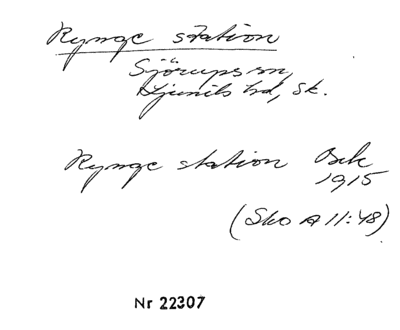 Rynge station
Sjörups sn,
Ljunits hd, Sk.
Rynge station Bek
1915
(Sko A 11:48)
Nr 22307